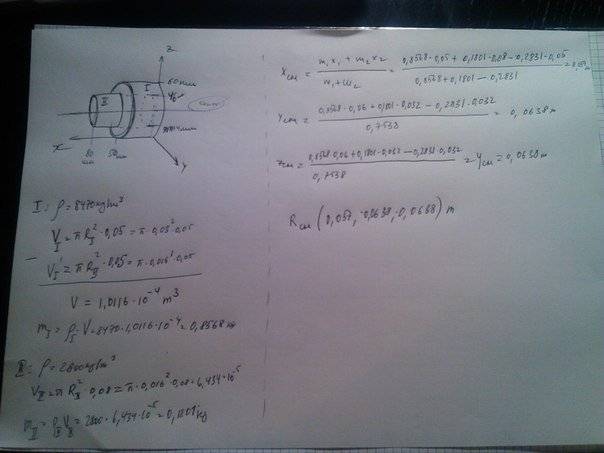 z
I
60mm
II
x
y
80
mm
50
mm
I: ρ = 8470 kg/m³
V_I = π R_I² · 0,05 = π · 0,03² · 0,05
V_I' = π R_II² · 0,05 = π · 0,016² · 0,05
V = 1,0116 · 10⁻⁴ m³
m_I = ρ_I V = 8470 · 1,0116 · 10⁻⁴ = 0,8568
II: ρ = 2800 kg/m³
V_II = π R_II² 0,08 = π · 0,016² · 0,08 = 6,434 · 10⁻⁵
m_II = ρ_II V_II = 2800 · 6,434 · 10⁻⁵ = 0,1801 kg
x_cm = (m₁x₁ + m₂x₂) / (m₁ + m₂) = (0,8568 · 0,05 + 0,1801 · 0,08 - 0,2831 · 0,05) / (0,8568 + 0,1801 - 0,2831)
y_cm = (0,8568 · 0,06 + 0,1801 · 0,032 - 0,2831 · 0,032) / 0,7538 = 0,0638 m
z_cm = (0,8568 · 0,06 + 0,1801 · 0,032 - 0,2831 · 0,032) / 0,7538 = y_cm = 0,0638 m
R_cm (0,057, -0,0638, -0,0638) m